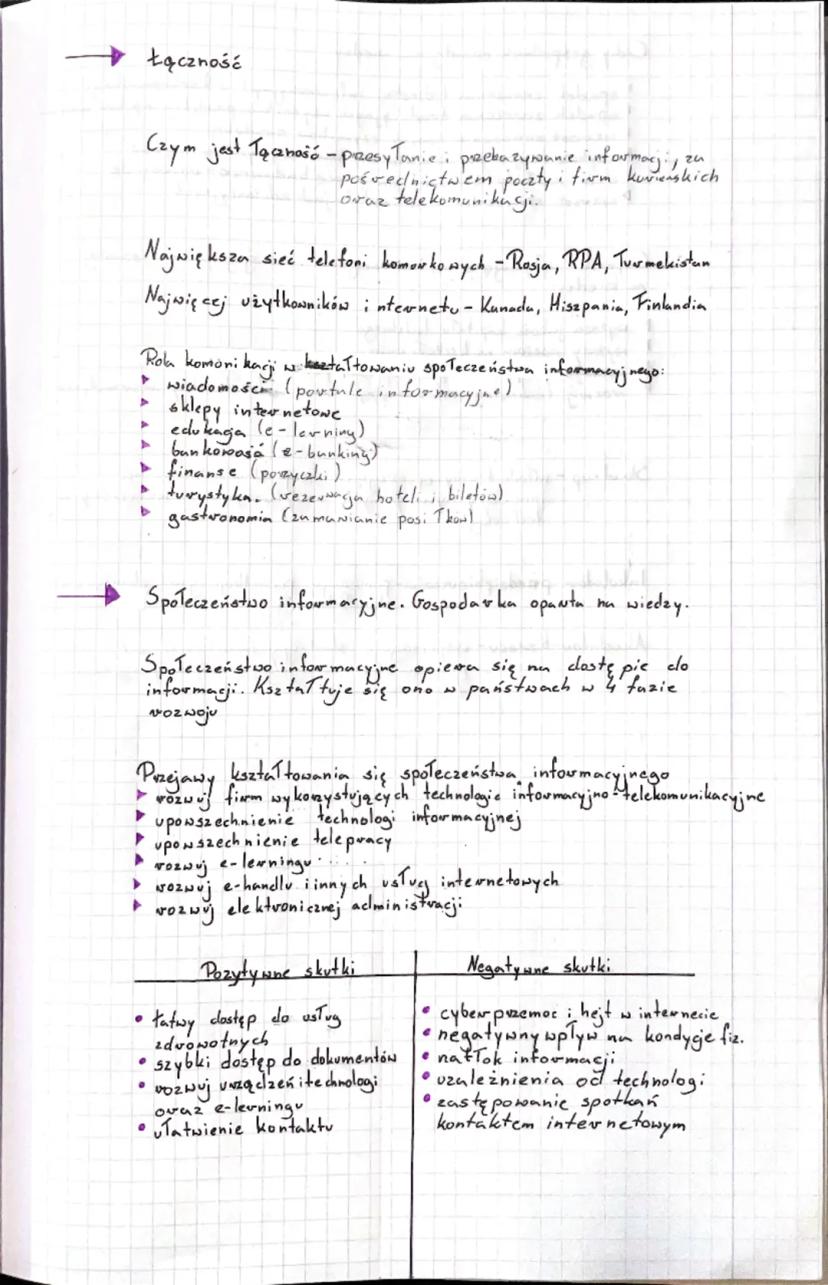 Łączność
Czym jest łączność - przesyłanie i przekazywanie informacji, za
pośrednictwem poczty i firm kurierskich
oraz telekomunikacji.
Największa sieć telefoni komurkowych - Rosja, RPA, Turmekistan
Najwięcej użytkowników internetu - Kanada, Hiszpania, Finlandia
Rola komonikacji w kształtowaniu społeczeństwa informacyjnego:
wiadomości (portale informacyjne)
sklepy internetowe
edukacja (e-lerning)
bankowość (e-banking)
finanse (porzyczki)
turystyka. (rezerwacja hoteli i biletów)
gastronomia (zamawianie posiłków)
Społeczeństwo informacyjne. Gospodarka oparta na wiedzy.
Społeczeństwo informacyjne opiera się na dostępie do
informacji. Kształtuje się ono w państwach w 4 fazie
rozwoju
Przejawy kształtowania się społeczeństwa informacyjnego
rozwuj firm wykorzystujących technologie informacyjno-telekomunikacyjne
upowszechnienie technologi informacyjnej
upowszechnienie telepracy
rozwuj e-learningu
rozwuj e-handlu i innych usług internetowych
rozwuj elektronicznej administracji
Pozytywne skutki Negatywne skutki
• łatwy dostęp do usług
zdrowotnych
• szybki dostęp do dokumentów
• rozwuj urządzeń i technologi
oraz e-lerningu
• ułatwienie kontaktu
• cyberprzemoc i hejt w internecie
• negatywny wpływ na kondycje fiz.
• natłok informacji
• uzależnienia od technologi
• zastępowanie spotkań
kontaktem internetowym